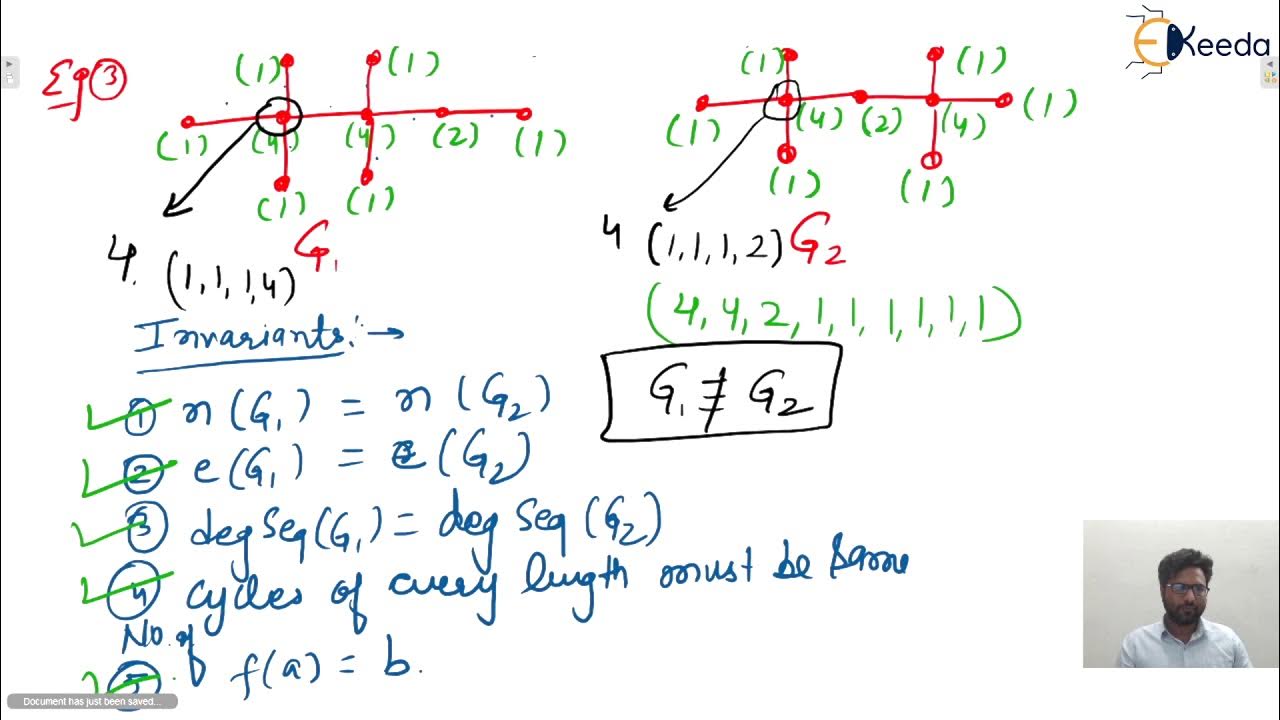 Eg ③
(1) (1)
(1) (4) (4) (2) (1)
(1) (1)
G₁
4. (1,1,1,4)
(1) (1)
(1) (4) (2) (4) (1)
(1) (1)
4 (1,1,1,2) G₂
(4,4,2,1,1,1,1,1,1)
G₁ ≇ G₂
Invariants:→
① n(G₁) = n(G₂)
② e(G₁) = e(G₂)
③ deg Seq(G₁) = deg Seq(G₂)
④ cycles of every length must be same
No. of
⑤ f(a) = b.
EKeeda
Document has just been saved...